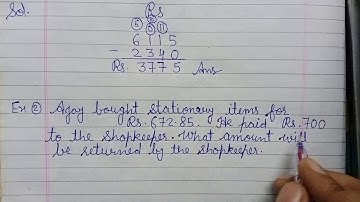 Sol.
Rs
⑤ ⑩ ⑪
6 1 1 5
- 2 3 4 0
Rs. 3 7 7 5 Ans
Ex ② Ajay bought stationary items for
Rs. 672.85. He paid Rs. 700
to the shopkeeper. What amount will
be returned by the shopkeeper.